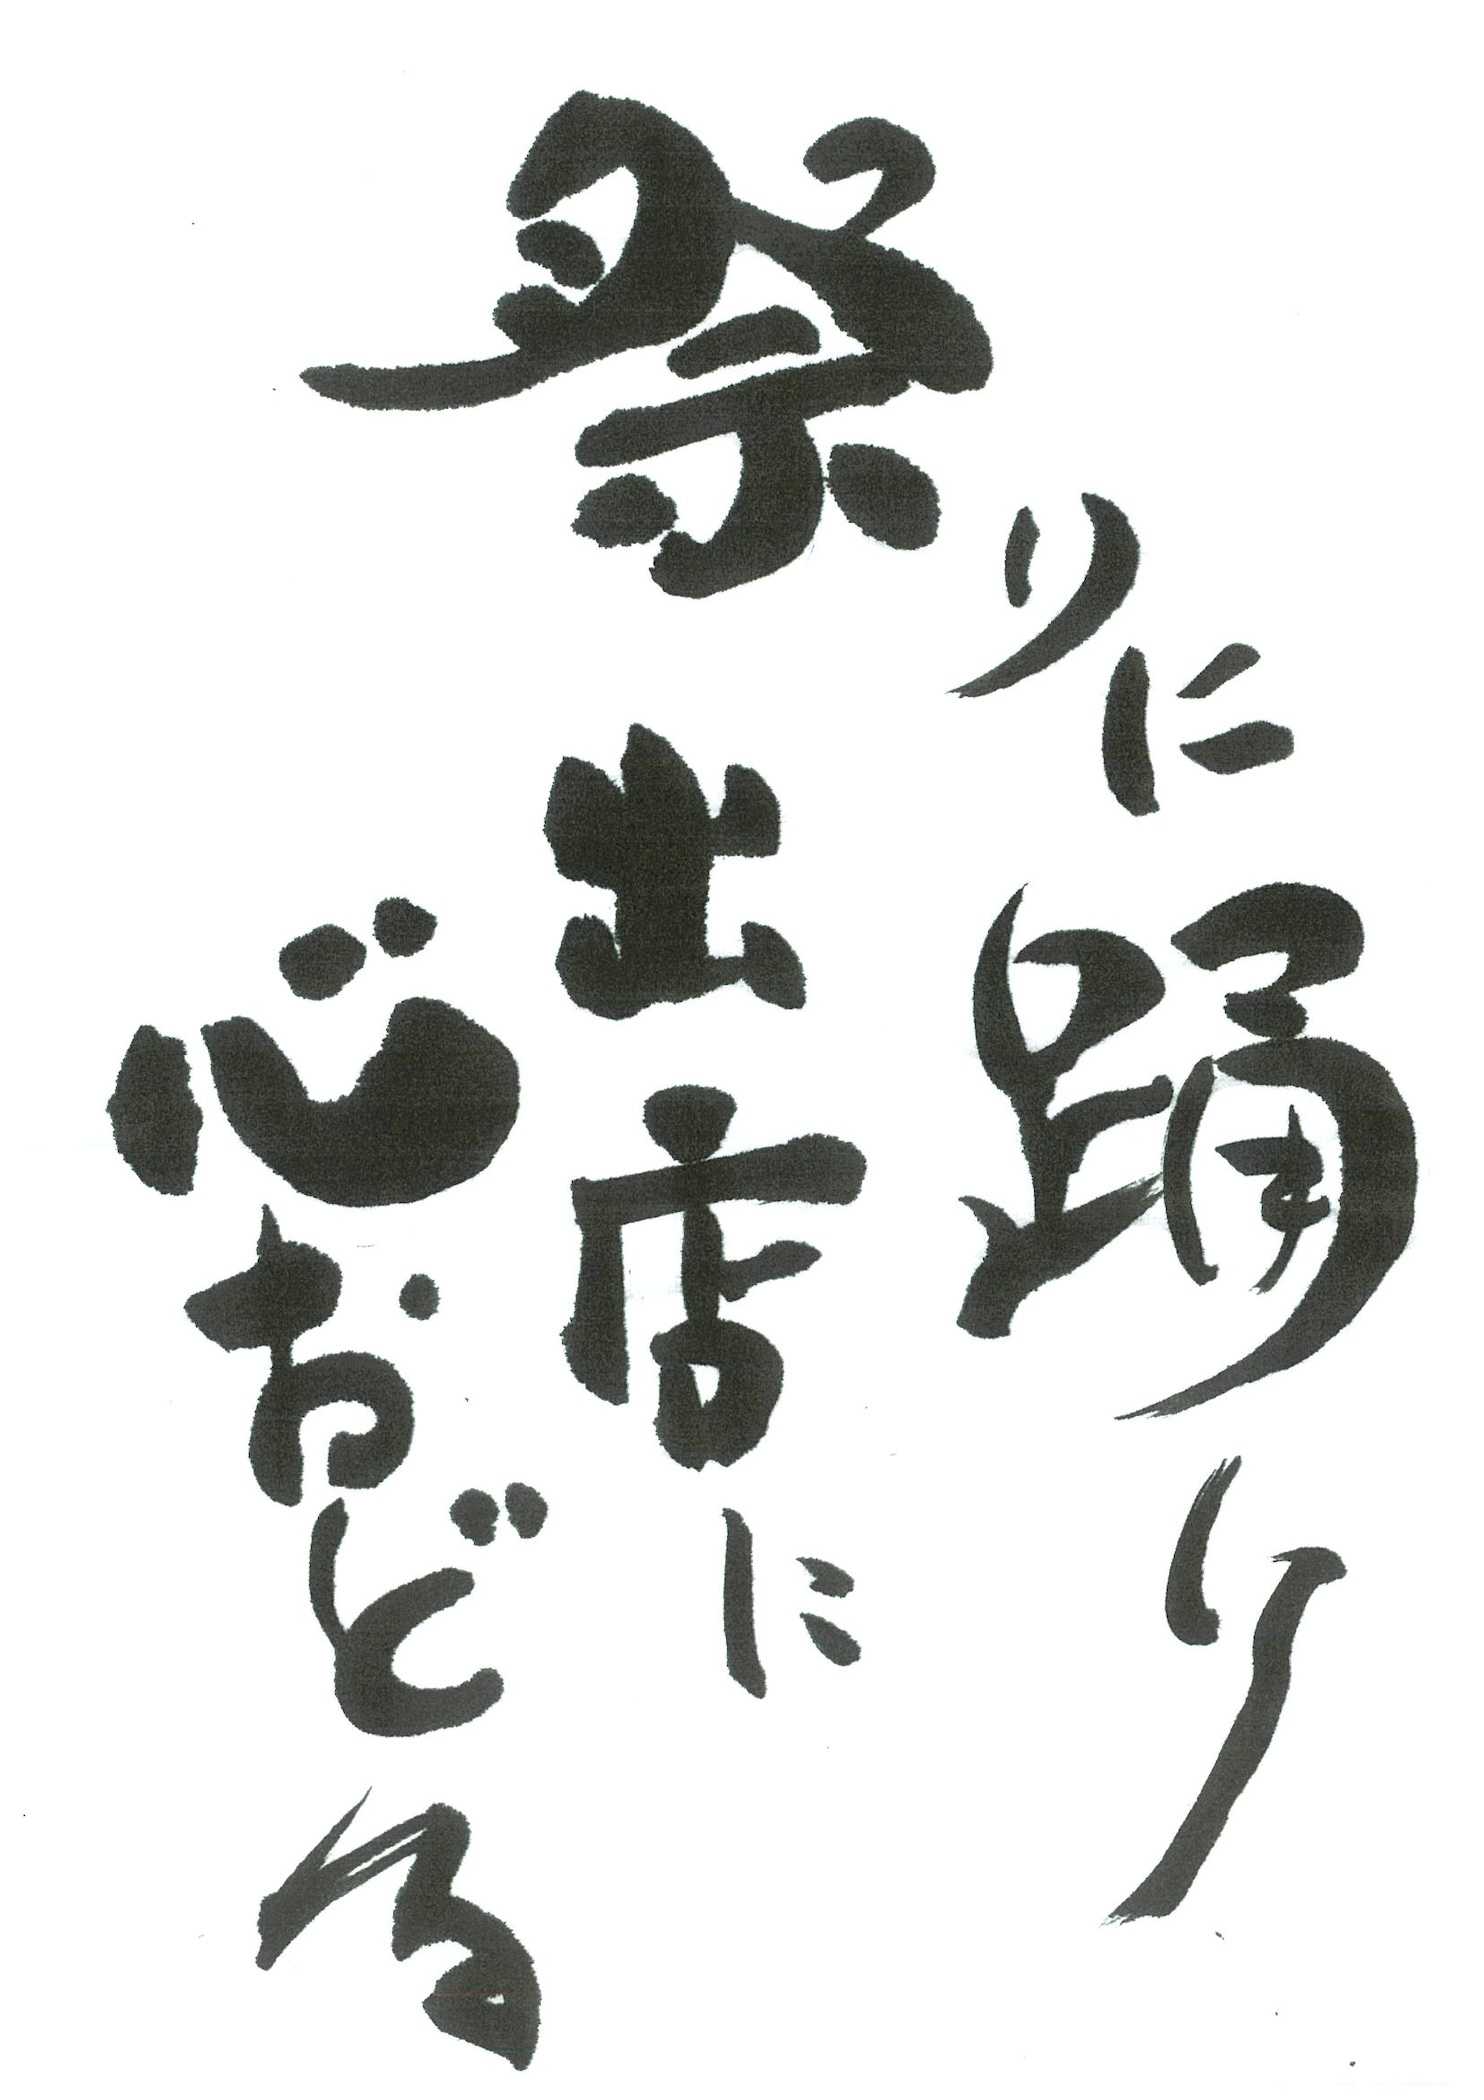 祭りに踊り
出店に
心おどる